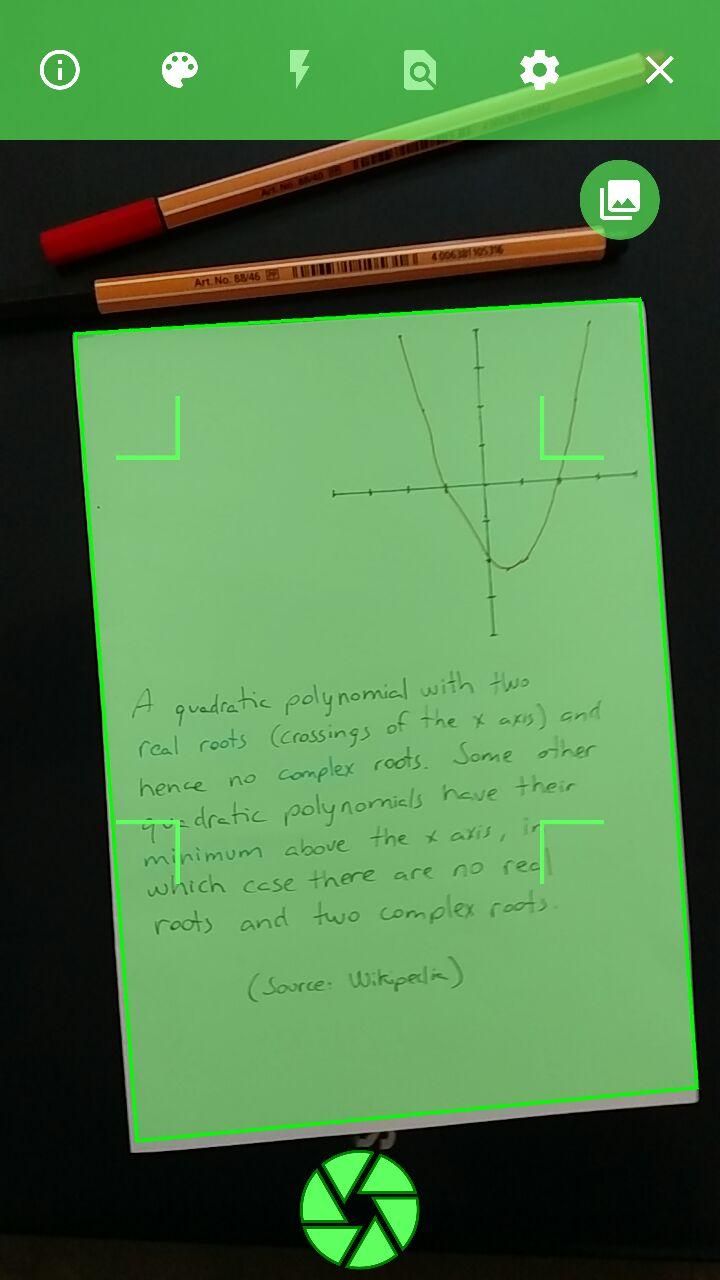 Art. No. 88/40
Art. No. 88/46 PP 4 006381 105316
A quadratic polynomial with two
real roots (crossings of the x axis) and
hence no complex roots. Some other
quadratic polynomials have their
minimum above the x axis, in
which case there are no real
roots and two complex roots.
(Source: Wikipedia)